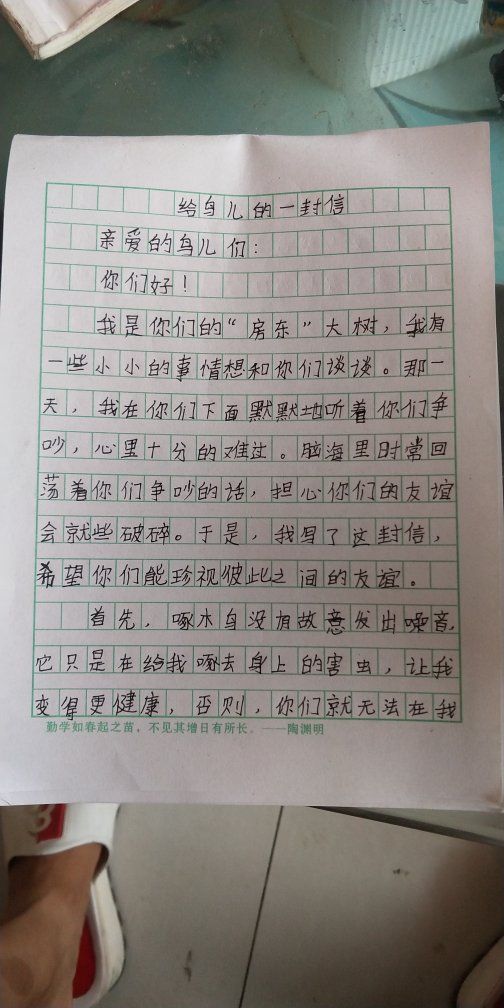 给鸟儿的一封信
亲爱的鸟儿们：
你们好！
我是你们的“房东”大树，我有
一些小小的事情想和你们谈谈。那一
天，我在你们下面默默地听着你们争
吵，心里十分的难过。脑海里时常回
荡着你们争吵的话，担心你们的友谊
会就些破碎。于是，我写了这封信，
希望你们能珍视彼此之间的友谊。
首先，啄木鸟没有故意发出噪音，
它只是在给我啄去身上的害虫，让我
变得更健康，否则，你们就无法在我
勤学如春起之苗，不见其增日有所长。——陶渊明